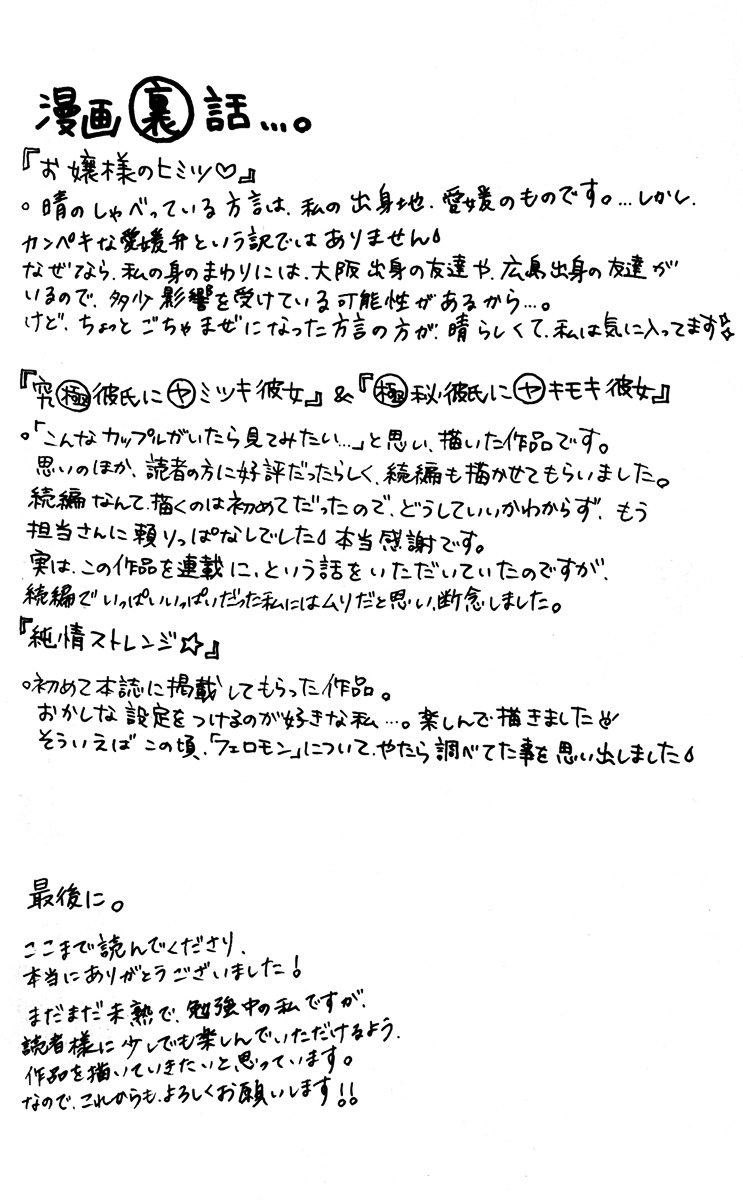 漫画㊙裏話…。
『お嬢様のヒミツ♡』
○晴のしゃべっている方言は、私の出身地、愛媛のものです。…しかし、
カンペキな愛媛弁という訳ではありません
なぜなら、私の身のまわりには、大阪出身の友達や、広島出身の友達が
いるので、多少影響を受けている可能性があるから…。
けど、ちょっとごちゃまぜになった方言の方が、晴らしくて、私は気に入ってます☆
『究極彼氏にヤミツキ彼女』&『極秘彼氏にヤキモキ彼女』
○「こんなカップルがいたら見てみたい…」と思い、描いた作品です。
思いのほか、読者の方に好評だったらしく、続編も描かせてもらいました。
続編なんて、描くのは初めてだったので、どうしていいかわからず、もう
担当さんに頼りっぱなしでした 本当感謝です。
実は、この作品を連載に、という話をいただいていたのですが、
続編でいっぱいいっぱいだった私にはムリだと思い、断念しました。
『純情ストレンジ☆』
○初めて本誌に掲載してもらった作品。
おかしな設定をつけるのが好きな私…。楽しんで描きました
そういえばこの頃、「フェロモン」について、やたら調べてた事を思い出しました
最後に。
ここまで読んでくださり、
本当にありがとうございました!
まだまだ未熟で、勉強中の私ですが、
読者様に少しでも楽しんでいただけるよう、
作品を描いていきたいと思っています。
なので、これからも、よろしくお願いします!!